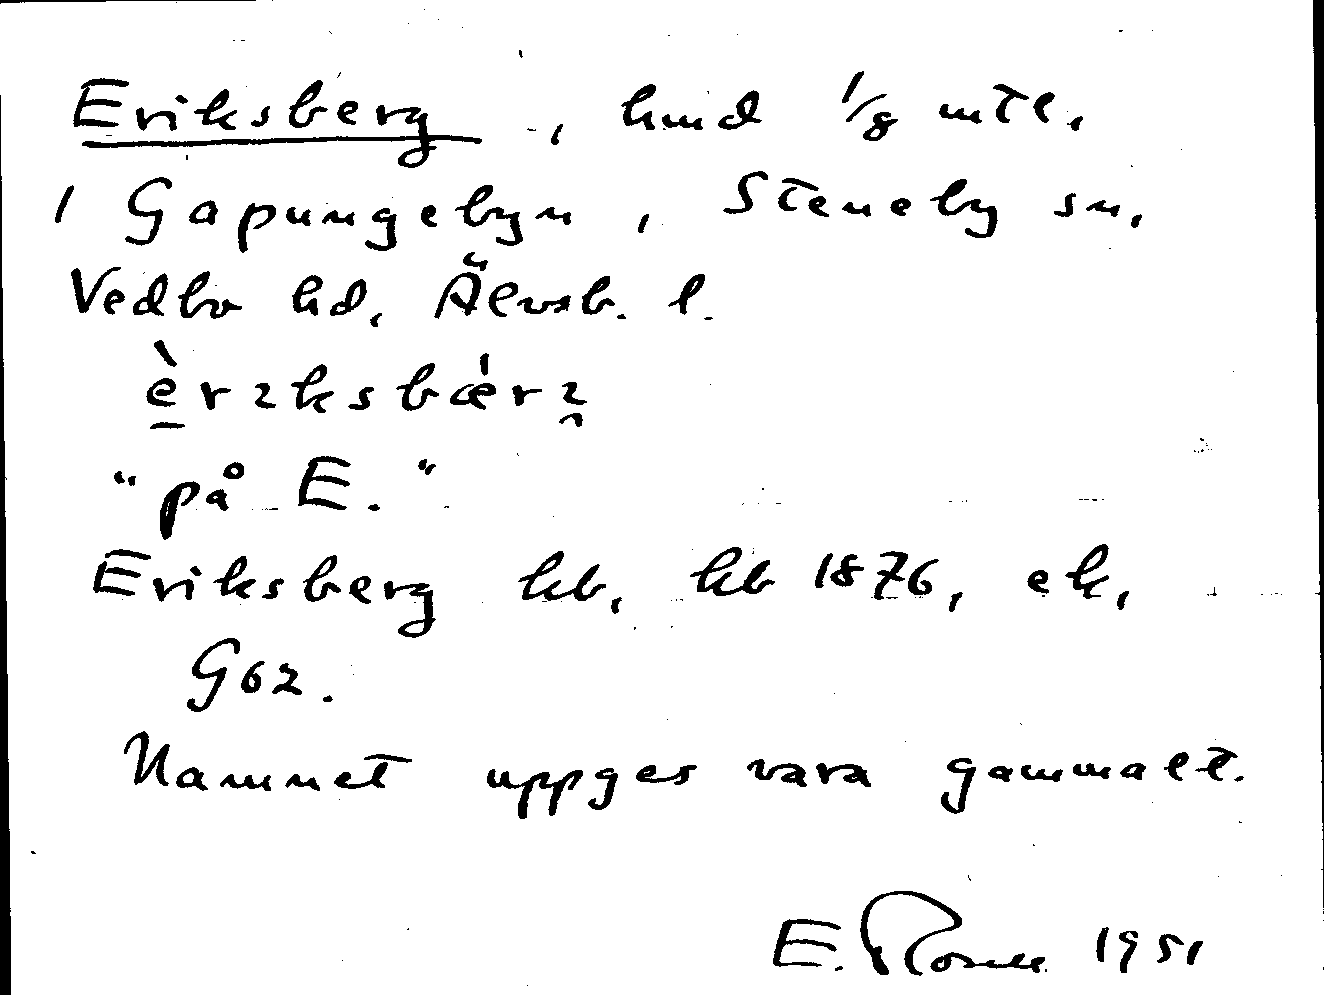 Eriksberg, hmd 1/8 mtl.
i Gapungebyn, Steneby sn,
Vedbo hd, Älvsb. l.
èrıksbær
"på E."
Eriksberg kb, kb 1876, ek,
G62.
Namnet uppges vara gammalt.
E. 1951